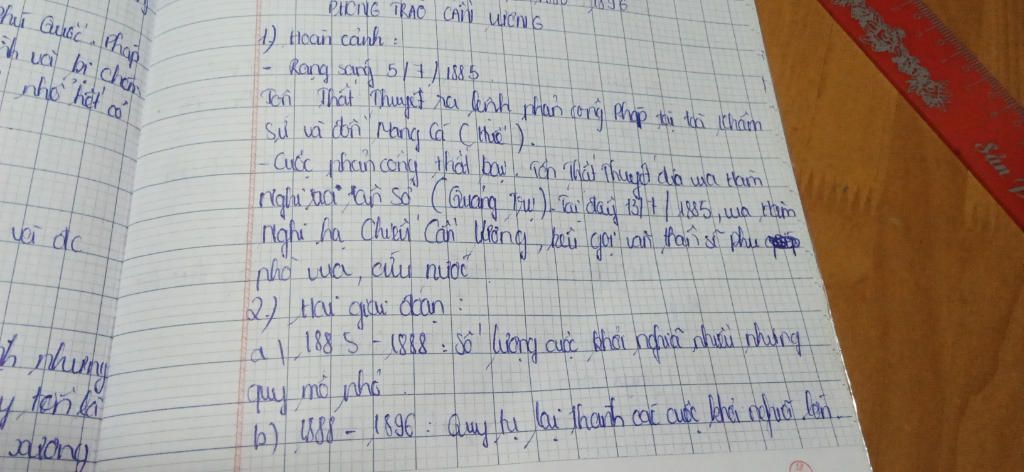 1896
PHONG TRÀO CẦN VƯƠNG
1) Hoàn cảnh:
- Rạng sáng 5/7/1885
Tôn Thất Thuyết ra lệnh phản công Pháp tại toà Khâm
sứ và đồn Mang Cá (Huế).
- Cuộc phản công thất bại, Tôn Thất Thuyết đưa vua Hàm
nghi ra Tân Sở (Quảng Trị). Tại đây 13/7/1885, vua Hàm
nghi hạ Chiếu Cần Vương, kêu gọi văn thân sĩ phu
phò vua, cứu nước
2.) Hai giai đoạn:
a) 1885 - 1888: số lượng cuộc khởi nghĩa nhiều nhưng
quy mô nhỏ.
b) 1888 - 1896: Quy tụ lại thành các cuộc khởi nghĩa lớn.
Quốc. Pháp
và bị chặn
nhỏ hết có
với đc
nhưng
xương